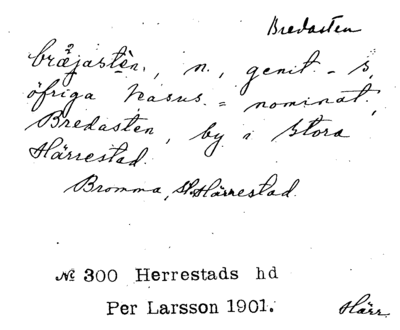 Bredasten
bræ̊jastèn., n., genit. - s,
öfriga kasus. = nominat.,
Bredasten, by i Stora
Härrestad.
Bromma, St. Härrestad.
№ 300 Herrestads hd
Per Larsson 1901.
Härr.